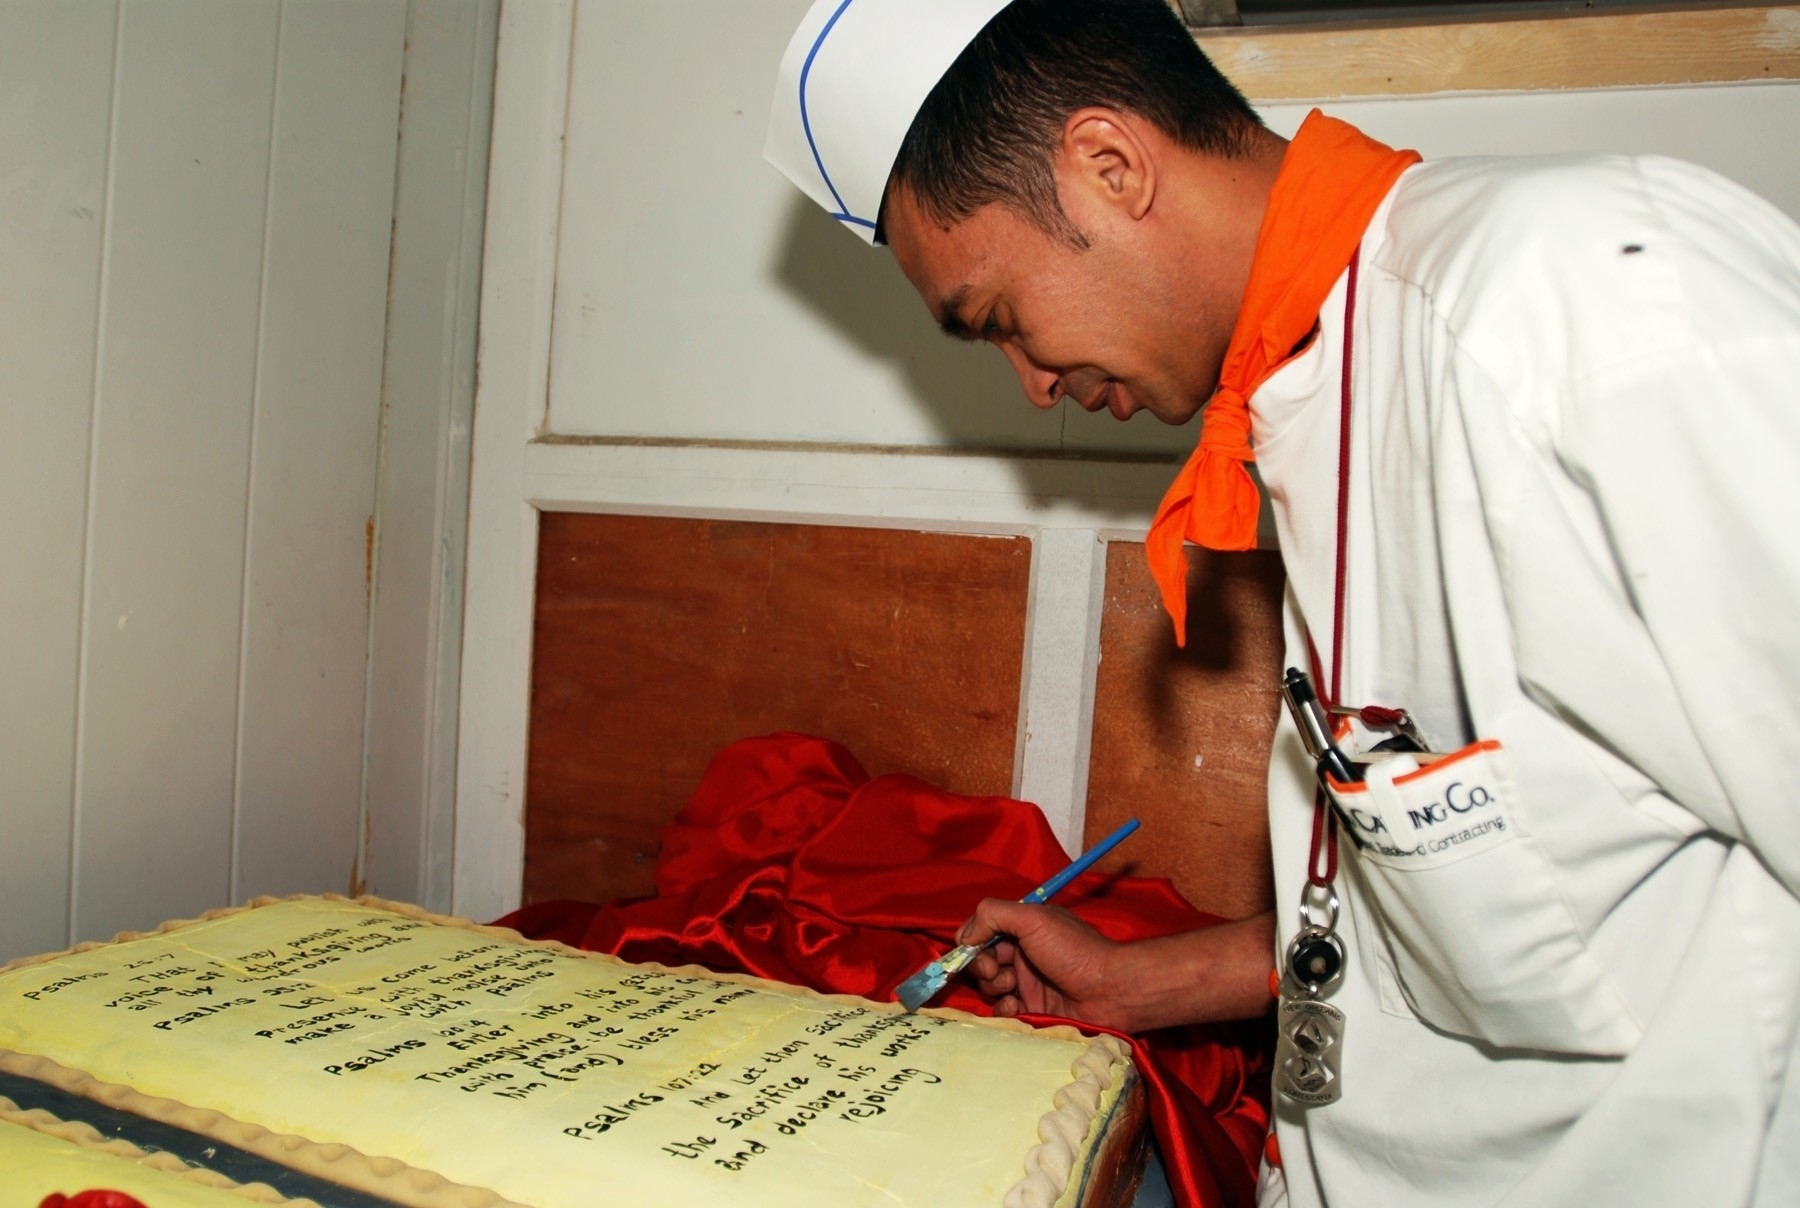 Psalms 26:7
That I may publish with
voice of thanksgiving and
all thy wundrous works
Psalms 95:2
Let us come before
Presence with thanksgiving
make a joyful noise unto
with psalms
Psalms 100:4
Enter into his gates
Thanksgiving and into his
with praise: be thankful
him (and) bless his name
Psalms 107:22
And let them sacrifice
the sacrifice of thanksgiving
and declare his works
rejoicing
ING Co.
Contracting